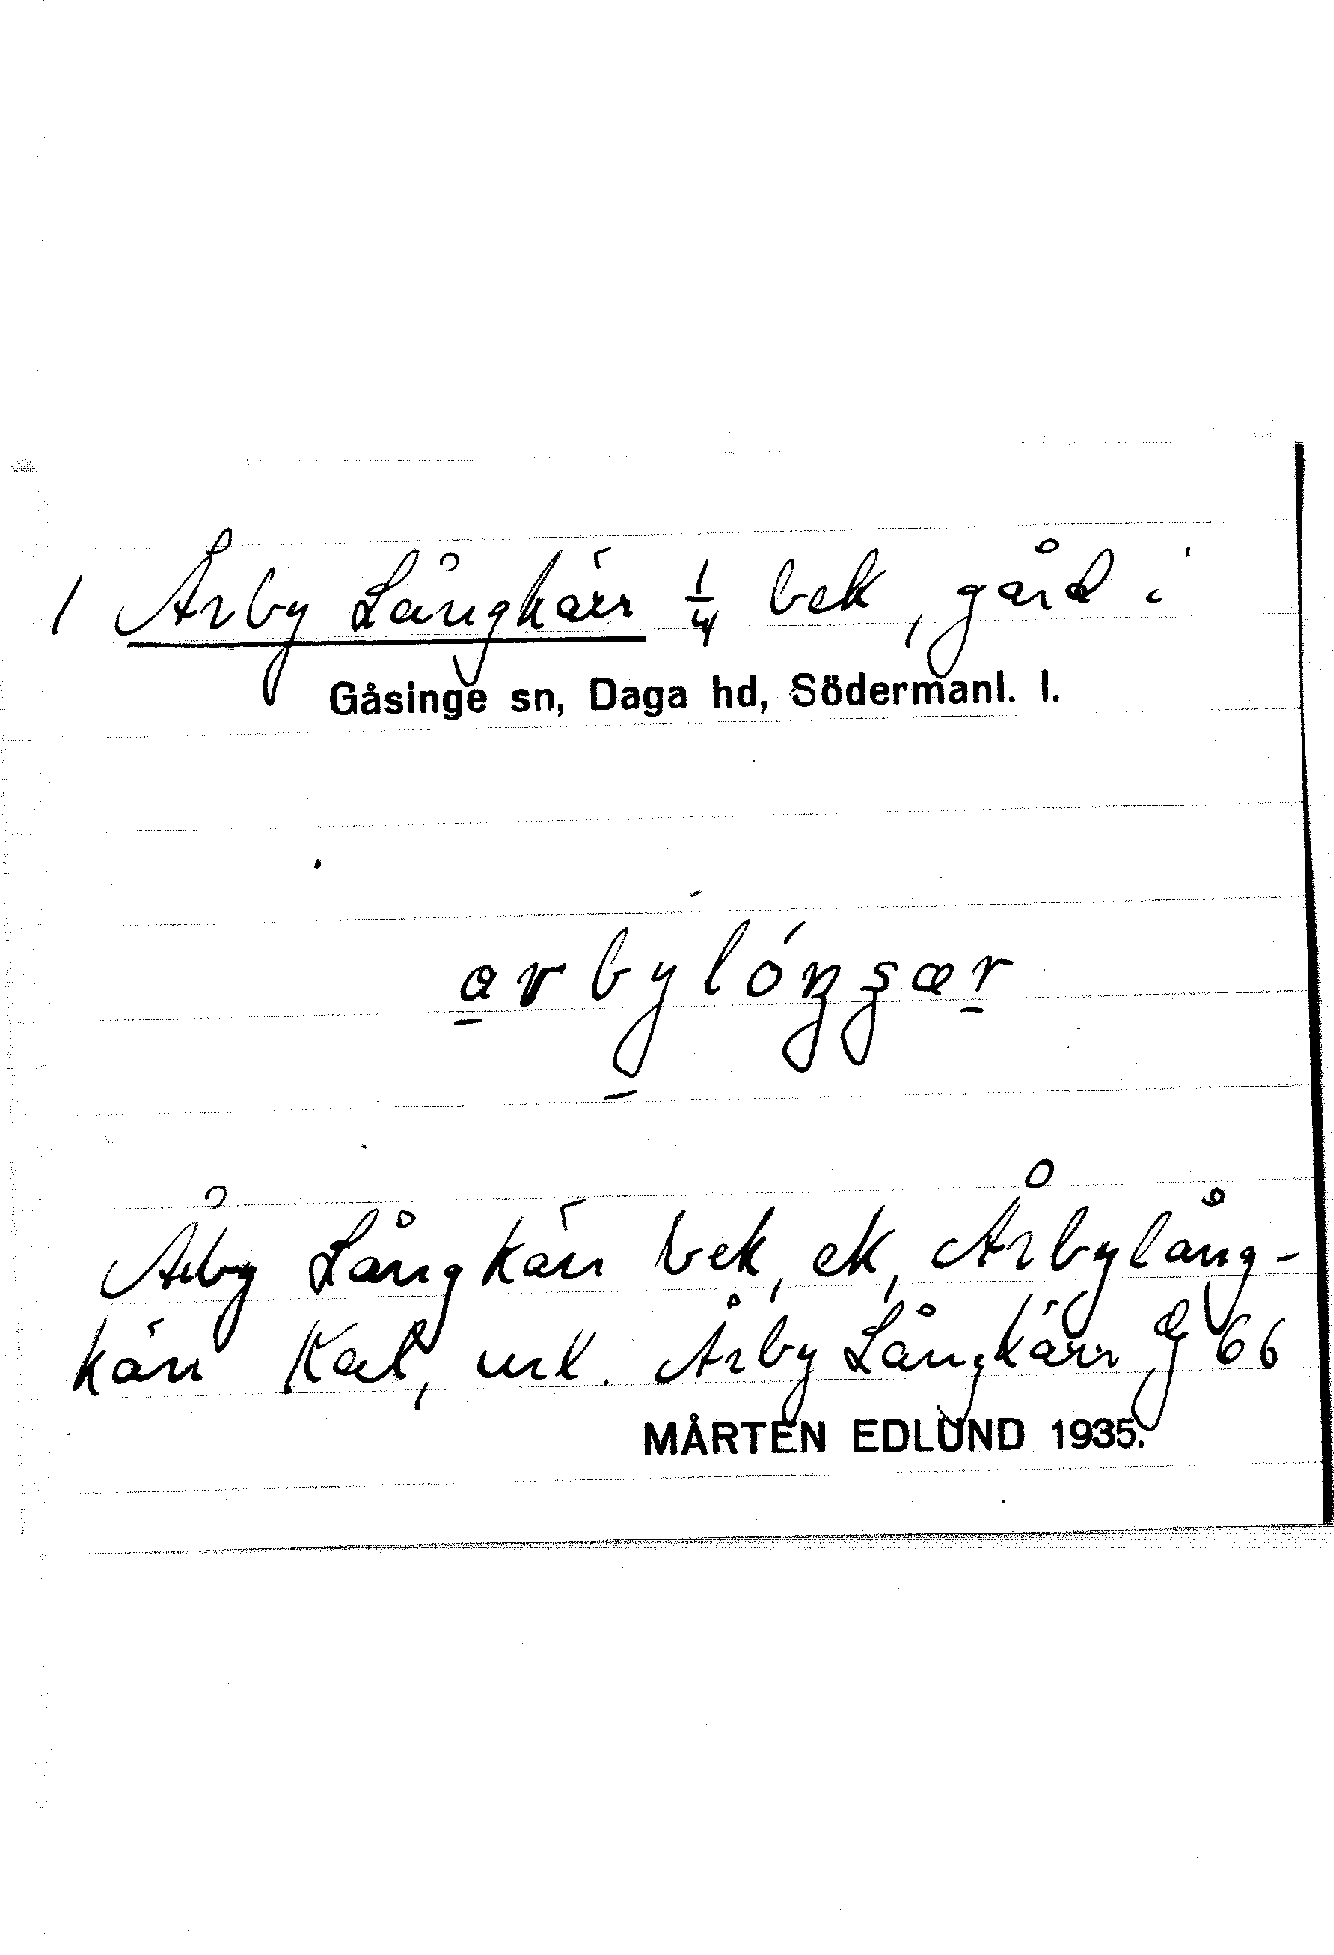 1 Årby Långkärr 1/4 bek, gård i
Gåsinge sn, Daga hd, Södermanl. l.
arbylóŋʂær
Årby Långkärr bek, ek, Årbylång-
kärr Kal, url. Årby Långkärr G 66
MÅRTEN EDLUND 1935.